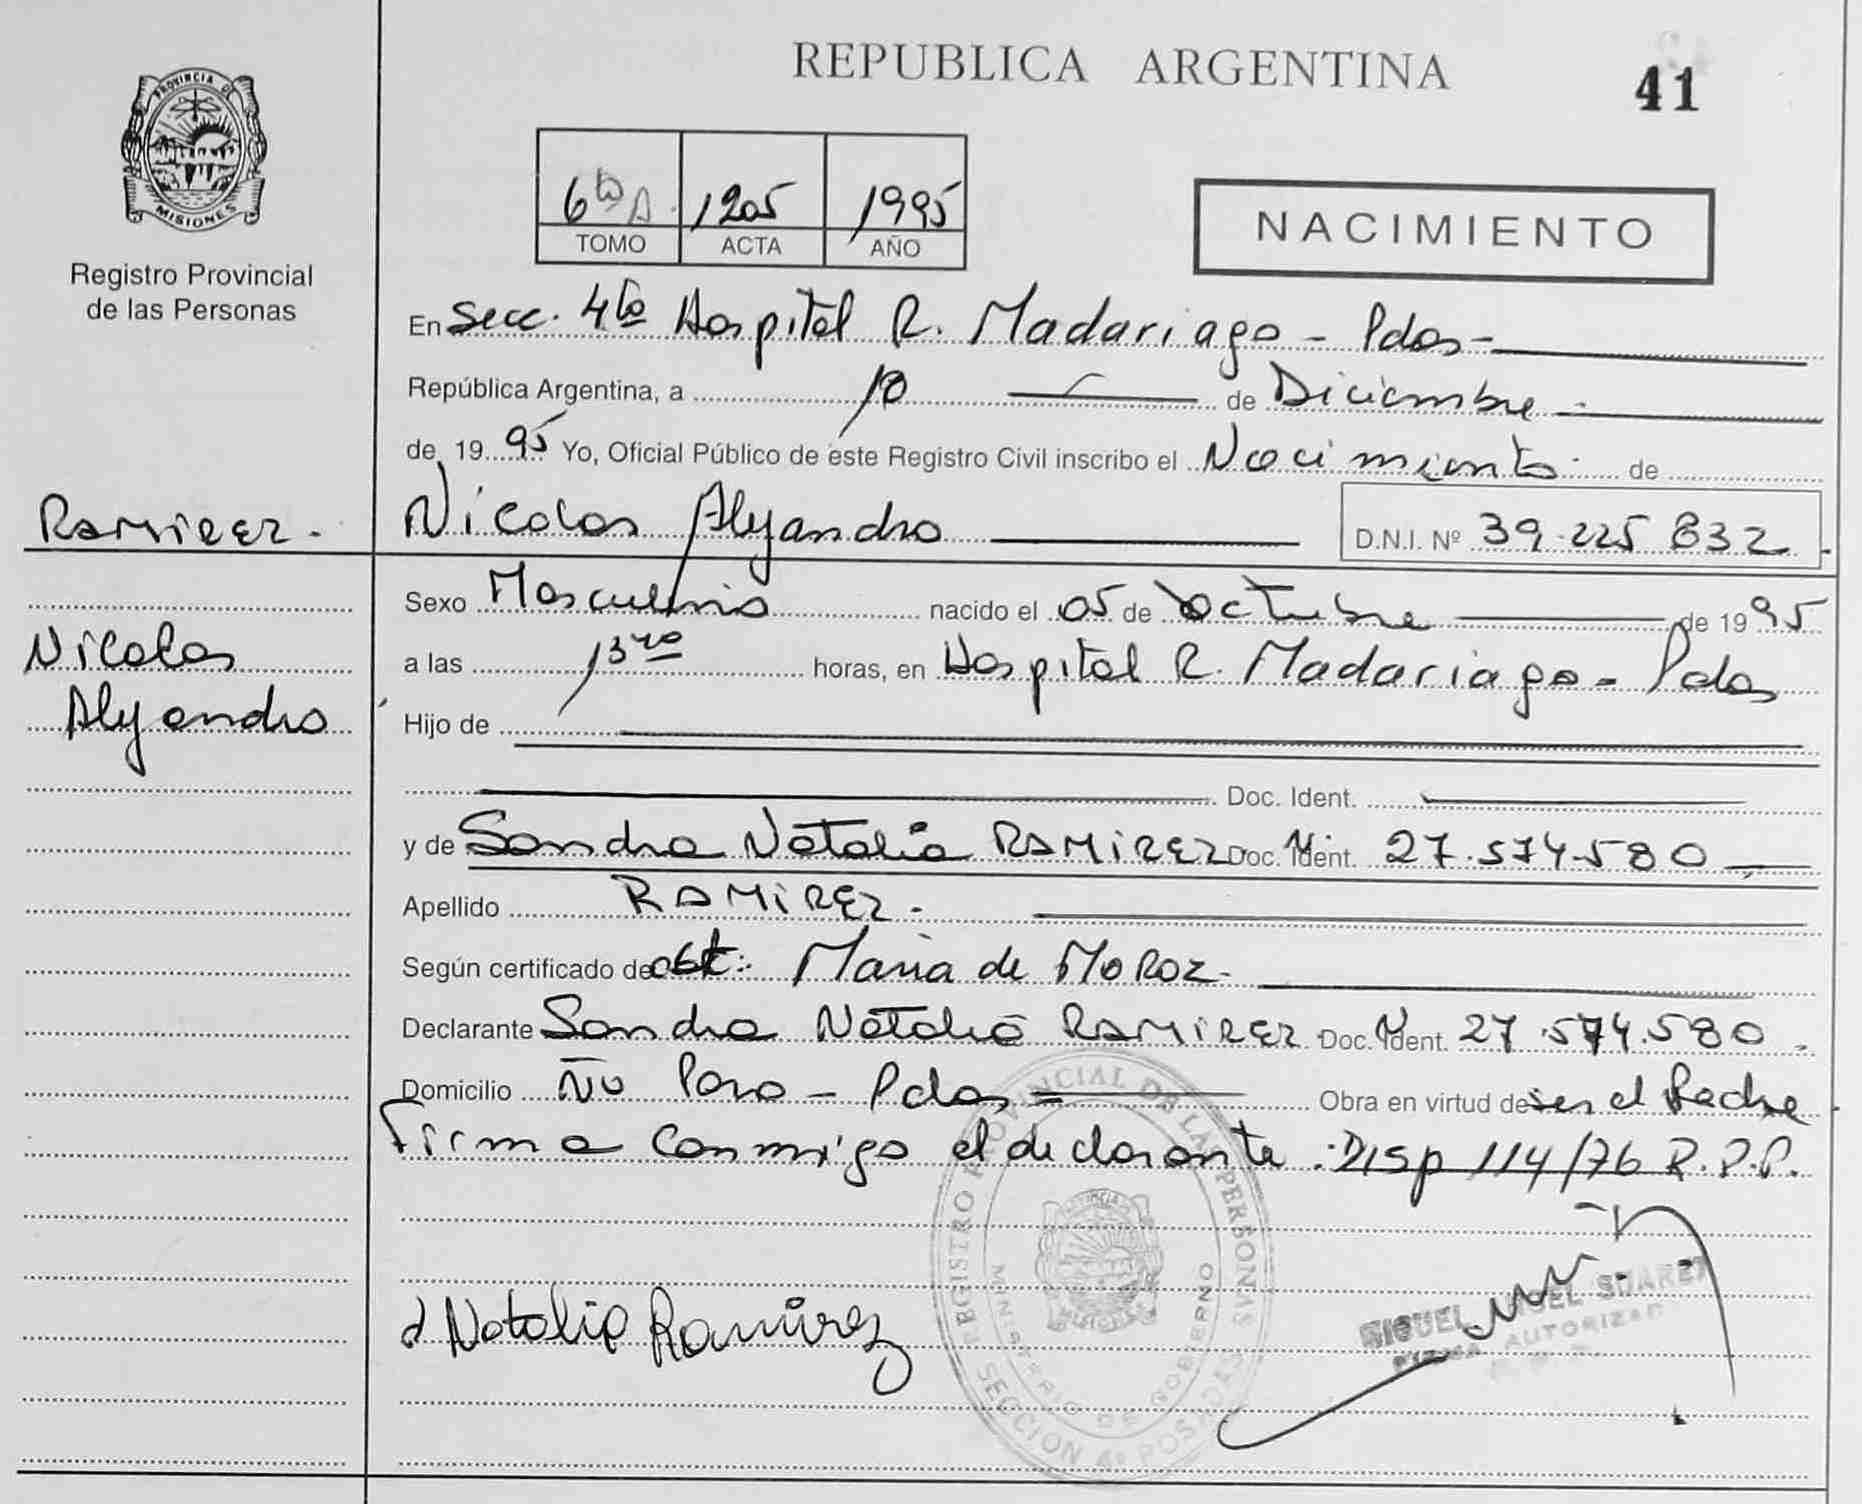 PROVINCIA DE
MISIONES
Registro Provincial
de las Personas
REPUBLICA ARGENTINA
41
6to A. 1205 1995
TOMO ACTA AÑO
NACIMIENTO
En Secc. 4ta Hospital R. Madariaga - Pdas -
República Argentina, a 10 de Diciembre -
de 1995 Yo, Oficial Público de este Registro Civil inscribo el Nacimiento de
Ramirez. Nicolas Alejandro D.N.I. Nº 39.225.832
Sexo Masculino nacido el 05 de octubre de 1995
Nicolas
a las 13 horas, en Hospital R. Madariaga - Pdas
Alejandro
Hijo de
Doc. Ident.
y de Sandra Natalia RAMIREZ Doc. Ident. 27.574.580
Apellido RAMIREZ.
Según certificado de obt: Maria de Moroz.
Declarante Sandra Natalia RAMIREZ Doc. Ident. 27.574.580
Domicilio - Pdas = Obra en virtud de ser el Padre
Firma conmigo el declarante: Disp 114/76 R.P.P.
REGISTRO PROVINCIAL DE LAS PERSONAS
MINISTERIO DE GOBIERNO
SECCION 4ª POSADAS
Natalia Ramirez
MIGUEL ANGEL SUAREZ
FIRMA AUTORIZADA